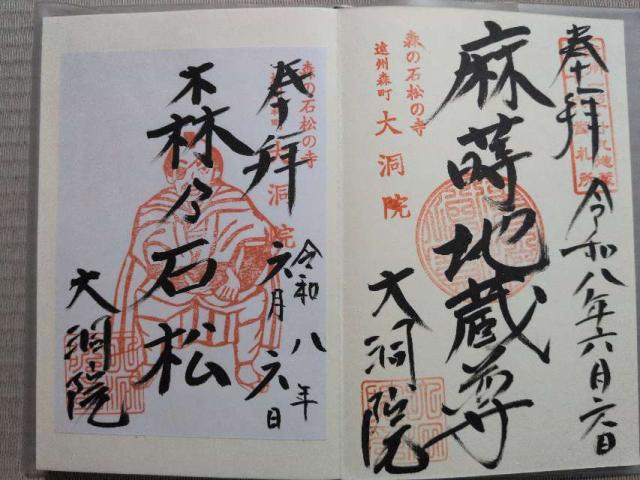 奉拝 令和八年六月六日
麻蒔地蔵尊
森の石松の寺
遠州森町 大洞院
大洞院
森の石松の寺
大洞院
奉拝
令和八年
六月六日
森乃石松
大洞院